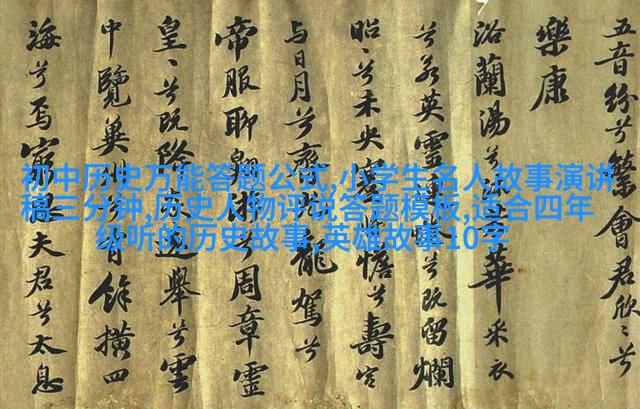 初中历史万能答题公式,小学生名人故事演讲
稿三分钟,历史人物评说答题模板,适合四年
级听的历史故事,英雄故事10字
五音紛兮繁會君欣〻兮
樂康
浴蘭湯兮華采衣
兮若英靈兮既留爛
昭〻兮未央蹇憺兮壽宮
与日月兮齊龍駕兮
帝服聊翱兮周章靈
皇〻兮既降遠舉兮雲
中覽冀州有餘橫四
海兮焉窮思夫君兮太息